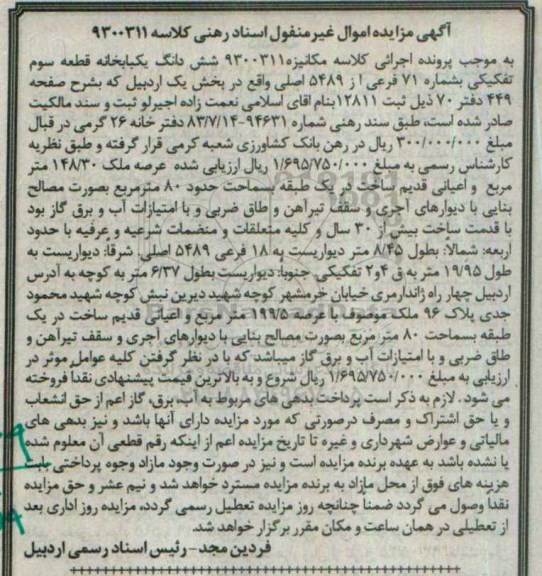 آگهی مزایده اموال غیر منقول اسناد رهنی کلاسه ۹۳۰۰۳۱۱
به موجب پرونده اجرائی کلاسه مکانیزه۹۳۰۰۳۱۱ شش دانگ یکبابخانه قطعه سوم
تفکیکی بشماره ۷۱ فرعی از ۵۴۸۹ اصلی واقع در بخش یک اردبیل که بشرح صفحه
۴۴۹ دفتر ۷۰ ذیل ثبت ۱۲۸۱۱بنام اقای اسلامی نعمت زاده اجیرلو ثبت و سند مالکیت
صادر شده است، طبق سند رهنی شماره ۹۴۶۳۱-۸۳/۷/۱۴ دفتر خانه ۲۶ گرمی در قبال
مبلغ ۳۰۰/۰۰۰/۰۰۰ ریال در رهن بانک کشاورزی شعبه گرمی قرار گرفته و طبق نظریه
کارشناس رسمی به مبلغ ۱/۶۹۵/۷۵۰/۰۰۰ ریال ارزیابی شده عرصه ملک ۱۴۸/۳۰ متر
مربع و اعیانی قدیم ساخت در یک طبقه بسماحت حدود ۸۰ مترمربع بصورت مصالح
بنایی با دیوارهای آجری و سقف تیرآهن و طاق ضربی و با امتیازات آب و برق گاز بود
با قدمت ساخت بیش از ۳۰ سال و کلیه متعلقات و منضمات شرعیه و عرفیه با حدود
اربعه: شمالاً: بطول ۸/۴۵ متر دیواریست به ۱۸ فرعی ۵۴۸۹ اصلی. شرقاً: دیواریست به
طول ۱۹/۹۵ متر به ق ۴و۲ تفکیکی. جنوباً: دیواریست بطول ۶/۳۷ متر به کوچه به آدرس
اردبیل چهار راه ژاندارمری خیابان خرمشهر کوچه شهید دیرین نبش کوچه شهید محمود
جدی پلاک ۹۶ ملک موصوف با عرصه ۱۹۹/۵ متر مربع و اعیانی قدیم ساخت در یک
طبقه بسماحت ۸۰ متر مربع بصورت مصالح بنایی با دیوارهای آجری و سقف تیرآهن و
طاق ضربی و با امتیازات آب و برق گاز میباشد که با در نظر گرفتن کلیه عوامل موثر در
ارزیابی به مبلغ ۱/۶۹۵/۷۵۰/۰۰۰ ریال شروع و به بالاترین قیمت پیشنهادی نقداً فروخته
می شود . لازم به ذکر است پرداخت بدهی های مربوط به آب، برق، گاز اعم از حق انشعاب
و یا حق اشتراک و مصرف درصورتی که مورد مزایده دارای آنها باشد و نیز بدهی های
مالیاتی و عوارض شهرداری و غیره تا تاریخ مزایده اعم از اینکه رقم قطعی آن معلوم شده
یا نشده باشد به عهده برنده مزایده است و نیز در صورت وجود مازاد وجوه پرداختی بابت
هزینه های فوق از محل مازاد به برنده مزایده مسترد خواهد شد و نیم عشر و حق مزایده
نقداً وصول می گردد ضمناً چنانچه روز مزایده تعطیل رسمی گردد، مزایده روز اداری بعد
از تعطیلی در همان ساعت و مکان مقرر برگزار خواهد شد.
فردین مجد - رئیس اسناد رسمی اردبیل